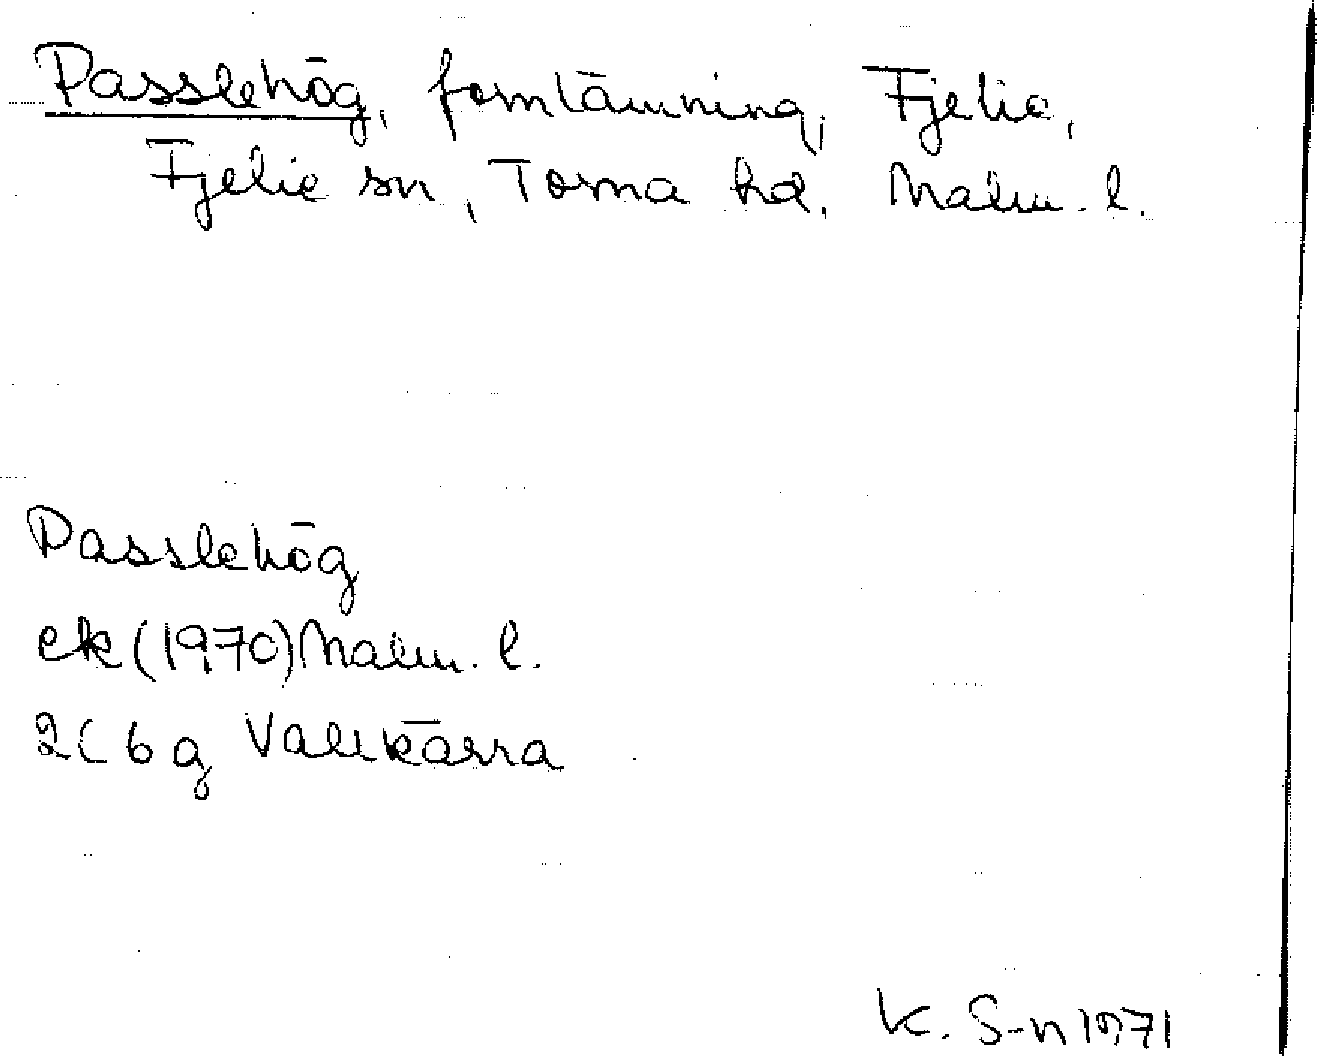 Passlehög, fornlämning, Fjelie,
Fjelie sn, Torna hd. Malm. l.
Passlehög
ek (1970) Malm. l.
2C 6 g Vallkärra
K. S-n 1971